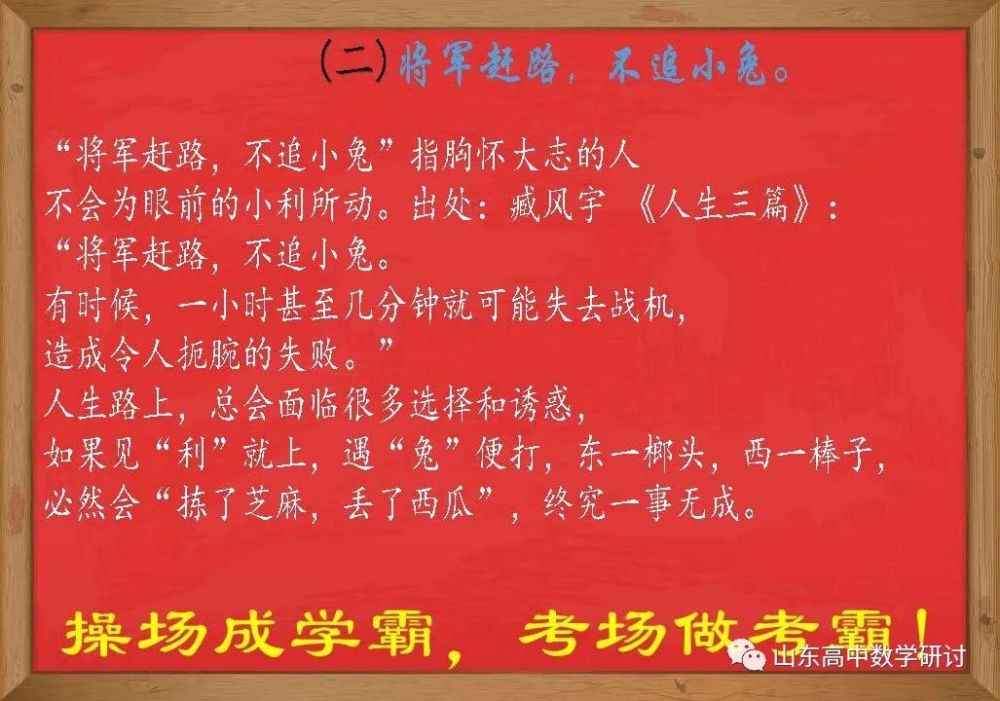 (二)将军赶路，不追小兔。
“将军赶路，不追小兔”指胸怀大志的人
不会为眼前的小利所动。出处：臧风宇 《人生三篇》：
“将军赶路，不追小兔。
有时候，一小时甚至几分钟就可能失去战机，
造成令人扼腕的失败。”
人生路上，总会面临很多选择和诱惑，
如果见“利”就上，遇“兔”便打，东一榔头，西一棒子，
必然会“拣了芝麻，丢了西瓜”，终究一事无成。
操场成学霸，考场做考霸！
山东高中数学研讨